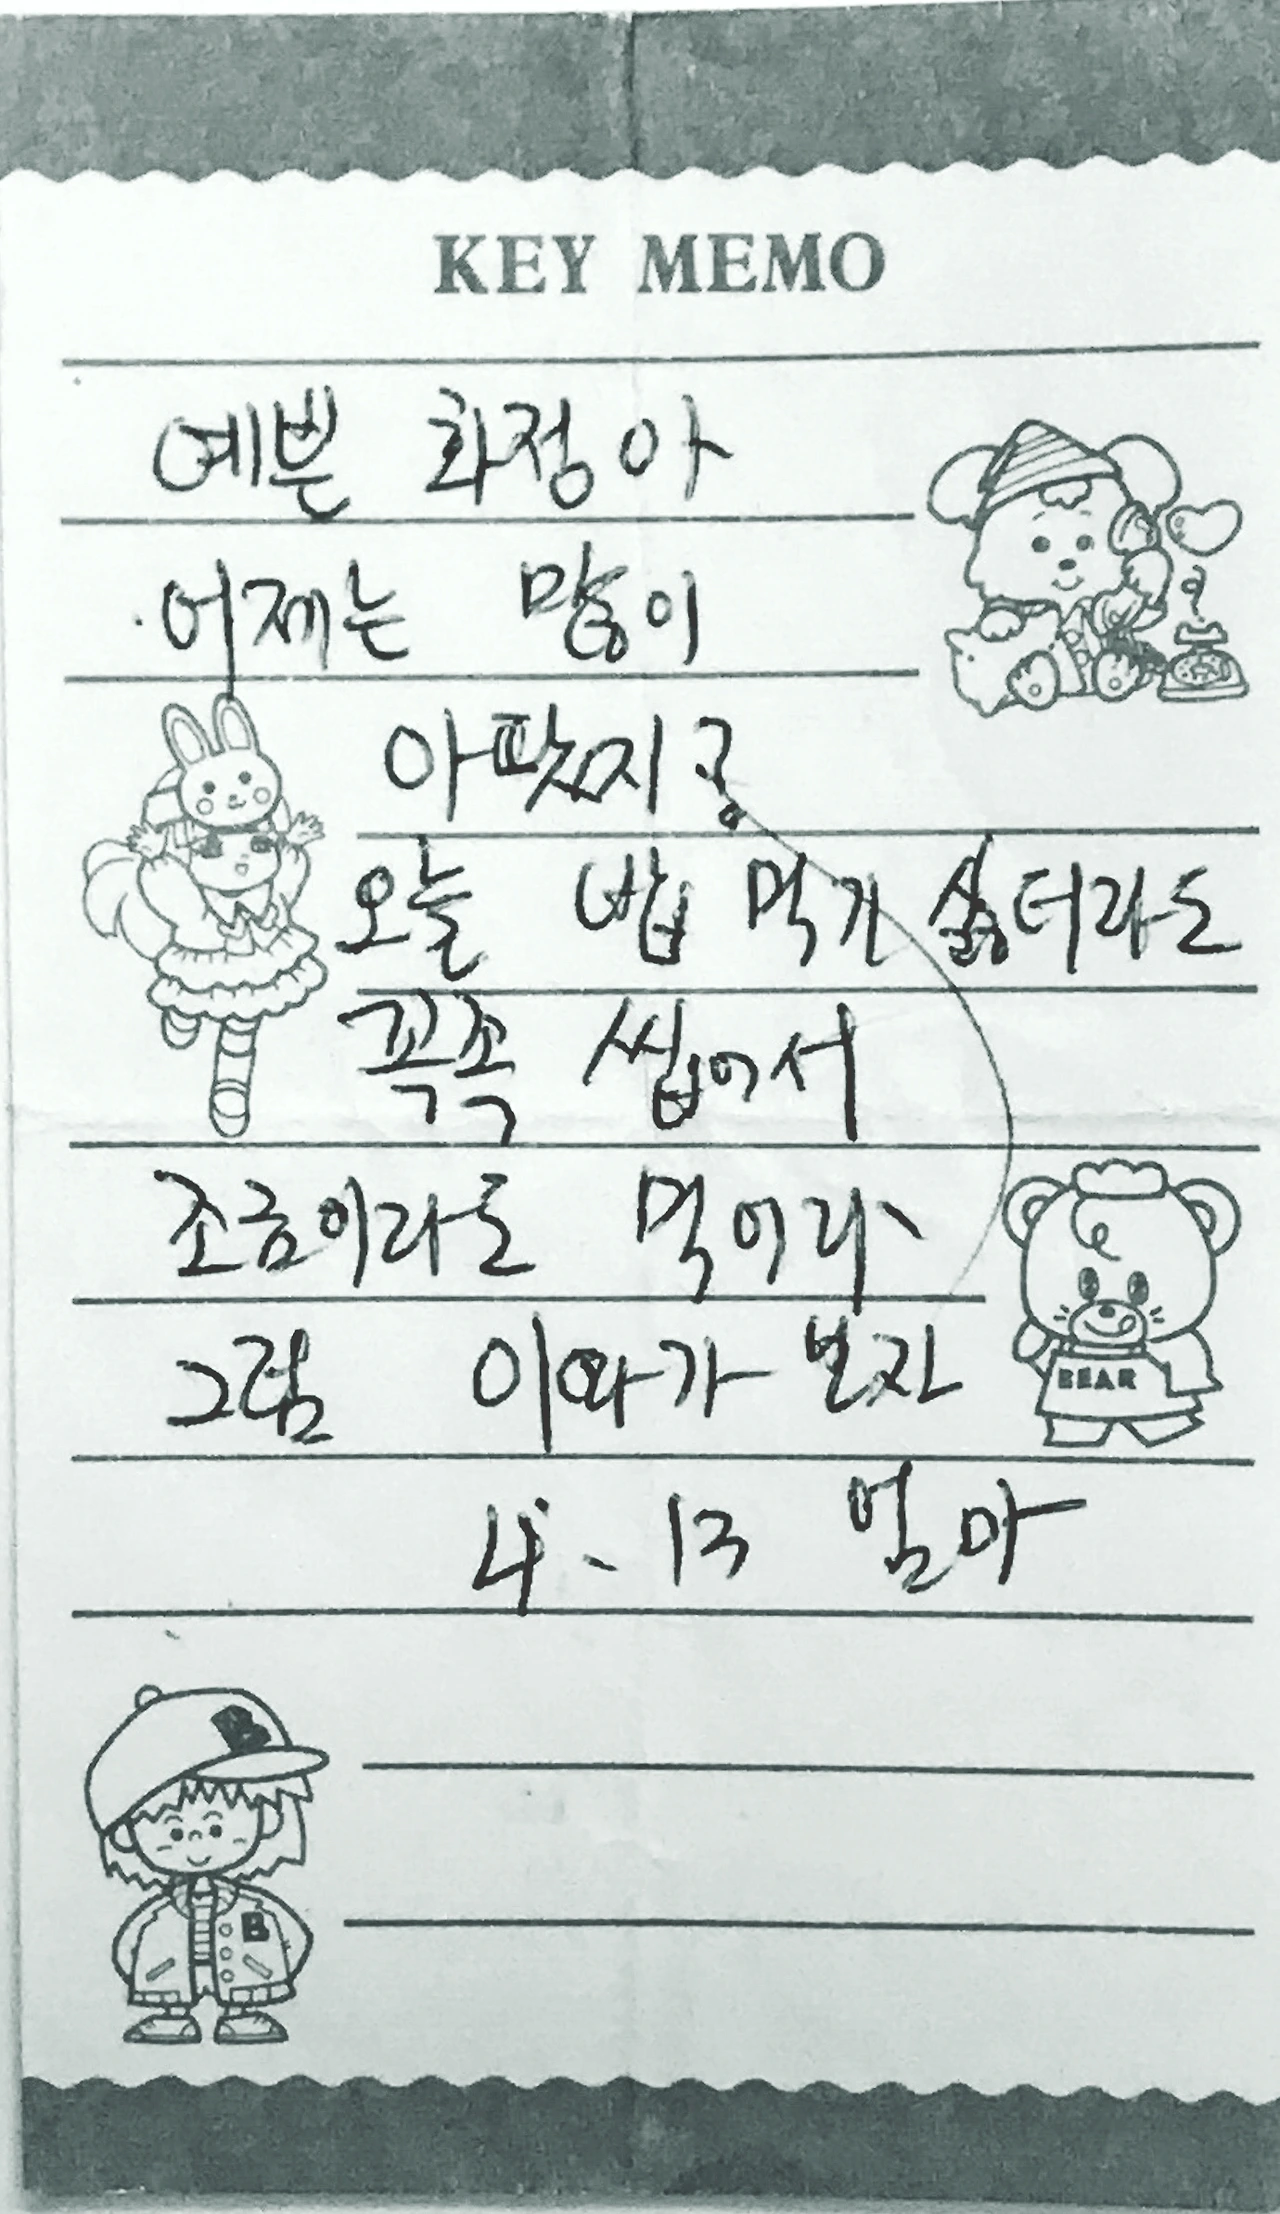 KEY MEMO
예쁜 화정아
어제는 많이
아팠지?
오늘 밥 먹기 싫더라도
꼭꼭 씹어서
조금이라도 먹어라
그럼 이따가 보자
4. 13 엄마
BEAR
B
B